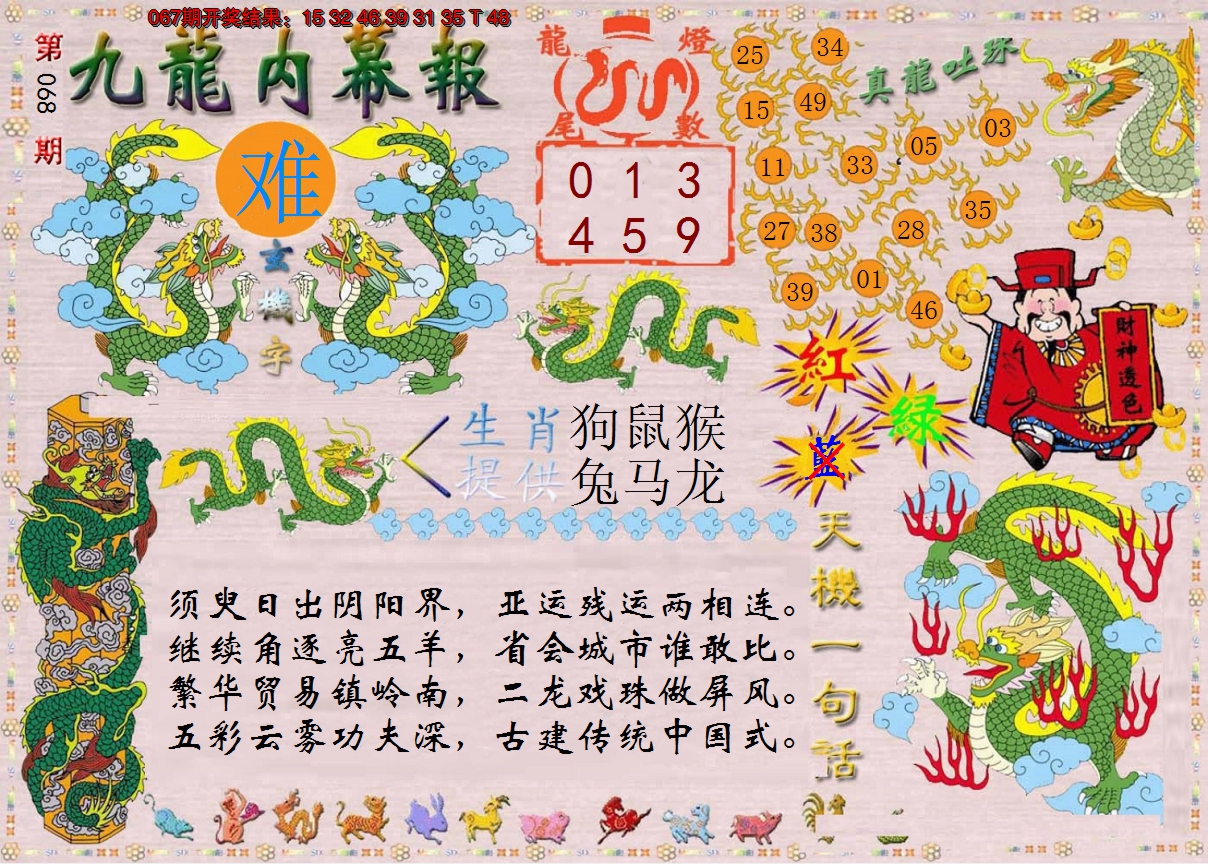 067期开奖结果：15 32 46 39 31 35 T 48
第
068
期
九龍内幕報
难
玄
機
字
龍 燈
尾 數
0 1 3
4 5 9
真龍吐珠
25
34
15
49
03
05
11
33
35
27
38
28
01
39
46
紅
綠
藍
財神透色
生肖
提供
狗鼠猴
兔马龙
须臾日出阴阳界，亚运残运两相连。
继续角逐亮五羊，省会城市谁敢比。
繁华贸易镇岭南，二龙戏珠做屏风。
五彩云雾功夫深，古建传统中国式。
天機一句話